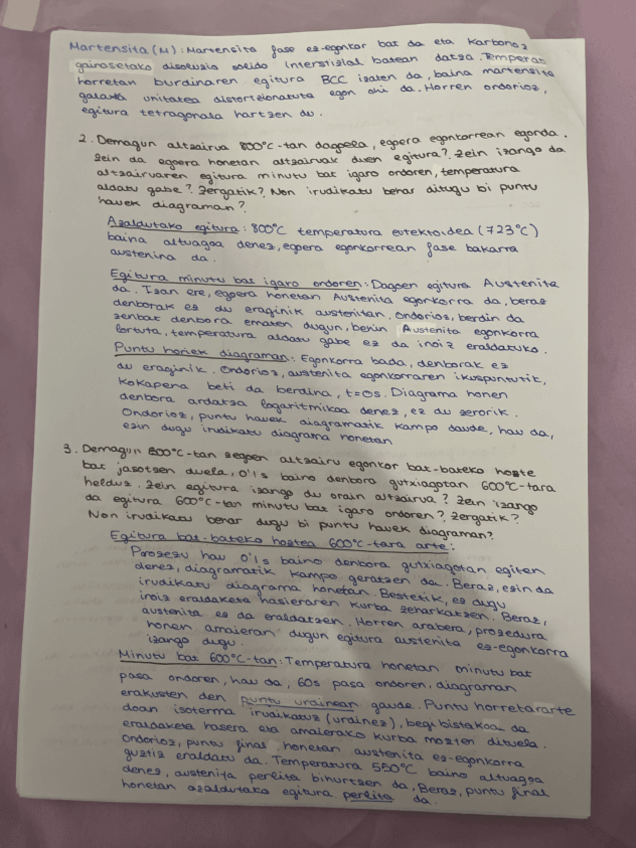 Martensita (M): Martensita fase ez-egonkor bat da eta karbonoz
gainasetako disoluzio solido interstizial batean datza. Temperat
horretan burdinaren egitura BCC izaten da, baina martensita
galaxi unitatea distortzionatuta egon ohi da. Horren ondorioz,
egitura tetragonala hartzen du.
2. Demagun altzairua 800°C-tan dagoela, egoera egonkorrean egonda.
Zein da egoera honetan altzairuak duen egitura? Zein izango da
altzairuaren egitura minutu bat igaro ondoren, temperatura
aldatu gabe? Zergatik? Non irudikatu behar ditugu bi puntu
hauek diagraman?
Azaldutako egitura: 800°C temperatura eutektoidea (723°C)
baina altuagoa denez, egoera egonkorrean fase bakarra
austenina da.
Egitura minutu bat igaro ondoren: Dagoen egitura Austenita
da. Izan ere, egoera honetan Austenita egonkorra da, beraz
denborak ez du eraginik austenitan. Ondorioz, berdin da
zenbat denbora ematen dugun, behin Austenita egonkorra
lortuta, temperatura aldatu gabe ez da inoiz eraldatuko.
Puntu horiek diagraman: Egonkorra bada, denborak ez
du eraginik. Ondorioz, austenita egonkorraren ikuspuntutik,
kokapena beti da berdina, t=0s. Diagrama honen
denbora ardatza logaritmikoa denez, ez du zerorik.
Ondorioz, puntu hauek diagramatik kampo daude, hau da,
ezin dugu irudikatu diagrama honetan
3. Demagun 800°C-tan zegoen altzairu egonkor bat-bateko hozte
bat jasotzen duela, 0'1s baino denbora gutxiagotan 600°C-tara
helduz. Zein egitura izango du orain altzairua? Zein izango
da egitura 600°C-tan minutu bat igaro ondoren? Zergatik?
Non irudikatu behar dugu bi puntu hauek diagraman?
Egitura bat-bateko hoztea 600°C-tara arte:
Prozesu hau 0'1s baino denbora gutxiagotan egiten
denez, diagramatik kampo geratzen da. Beraz, ezin da
irudikatu diagrama honetan. Bestetik, ez dugu
inoiz eraldaketa hasieraren kurba zeharkatzen. Beraz,
austenita ez da eraldatzen. Horren arabera, prozedura
honen amaieran dugun egitura austenita ez-egonkorra
izango dugu.
Minutu bat 600°C-tan: Temperatura honetan minutu bat
pasa ondoren, hau da, 60s pasa ondoren, diagraman
erakusten den puntu urdinean gaude. Puntu horretararte
doan isoterma irudikatuz (urdinez), begibistakoa da
eraldaketa hasera eta amaierako kurba mozten dituela.
Ondorioz, puntu final honetan austenita ez-egonkorra
guztiz eraldatu da. Temperatura 550°C baino altuagoa
denez, austenita perlita bihurtzen da. Beraz, puntu final
honetan azaldutako egitura perlita da.